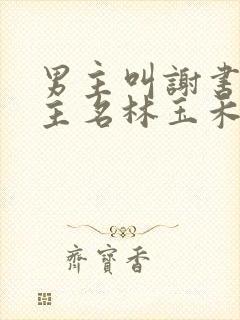 男主叫謝書
主名林玉禾
齊寶香